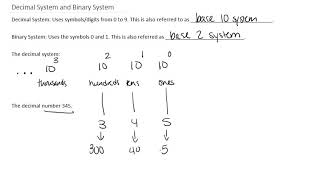 Decimal System and Binary System
Decimal System: Uses symbols/digits from 0 to 9. This is also referred to as base 10 system
Binary System: Uses the symbols 0 and 1. This is also referred to as base 2 system
The decimal system:
... 10³ 10² 10¹ 10⁰
thousands hundreds tens ones
The decimal number 345.
3 4 5
300 40 5